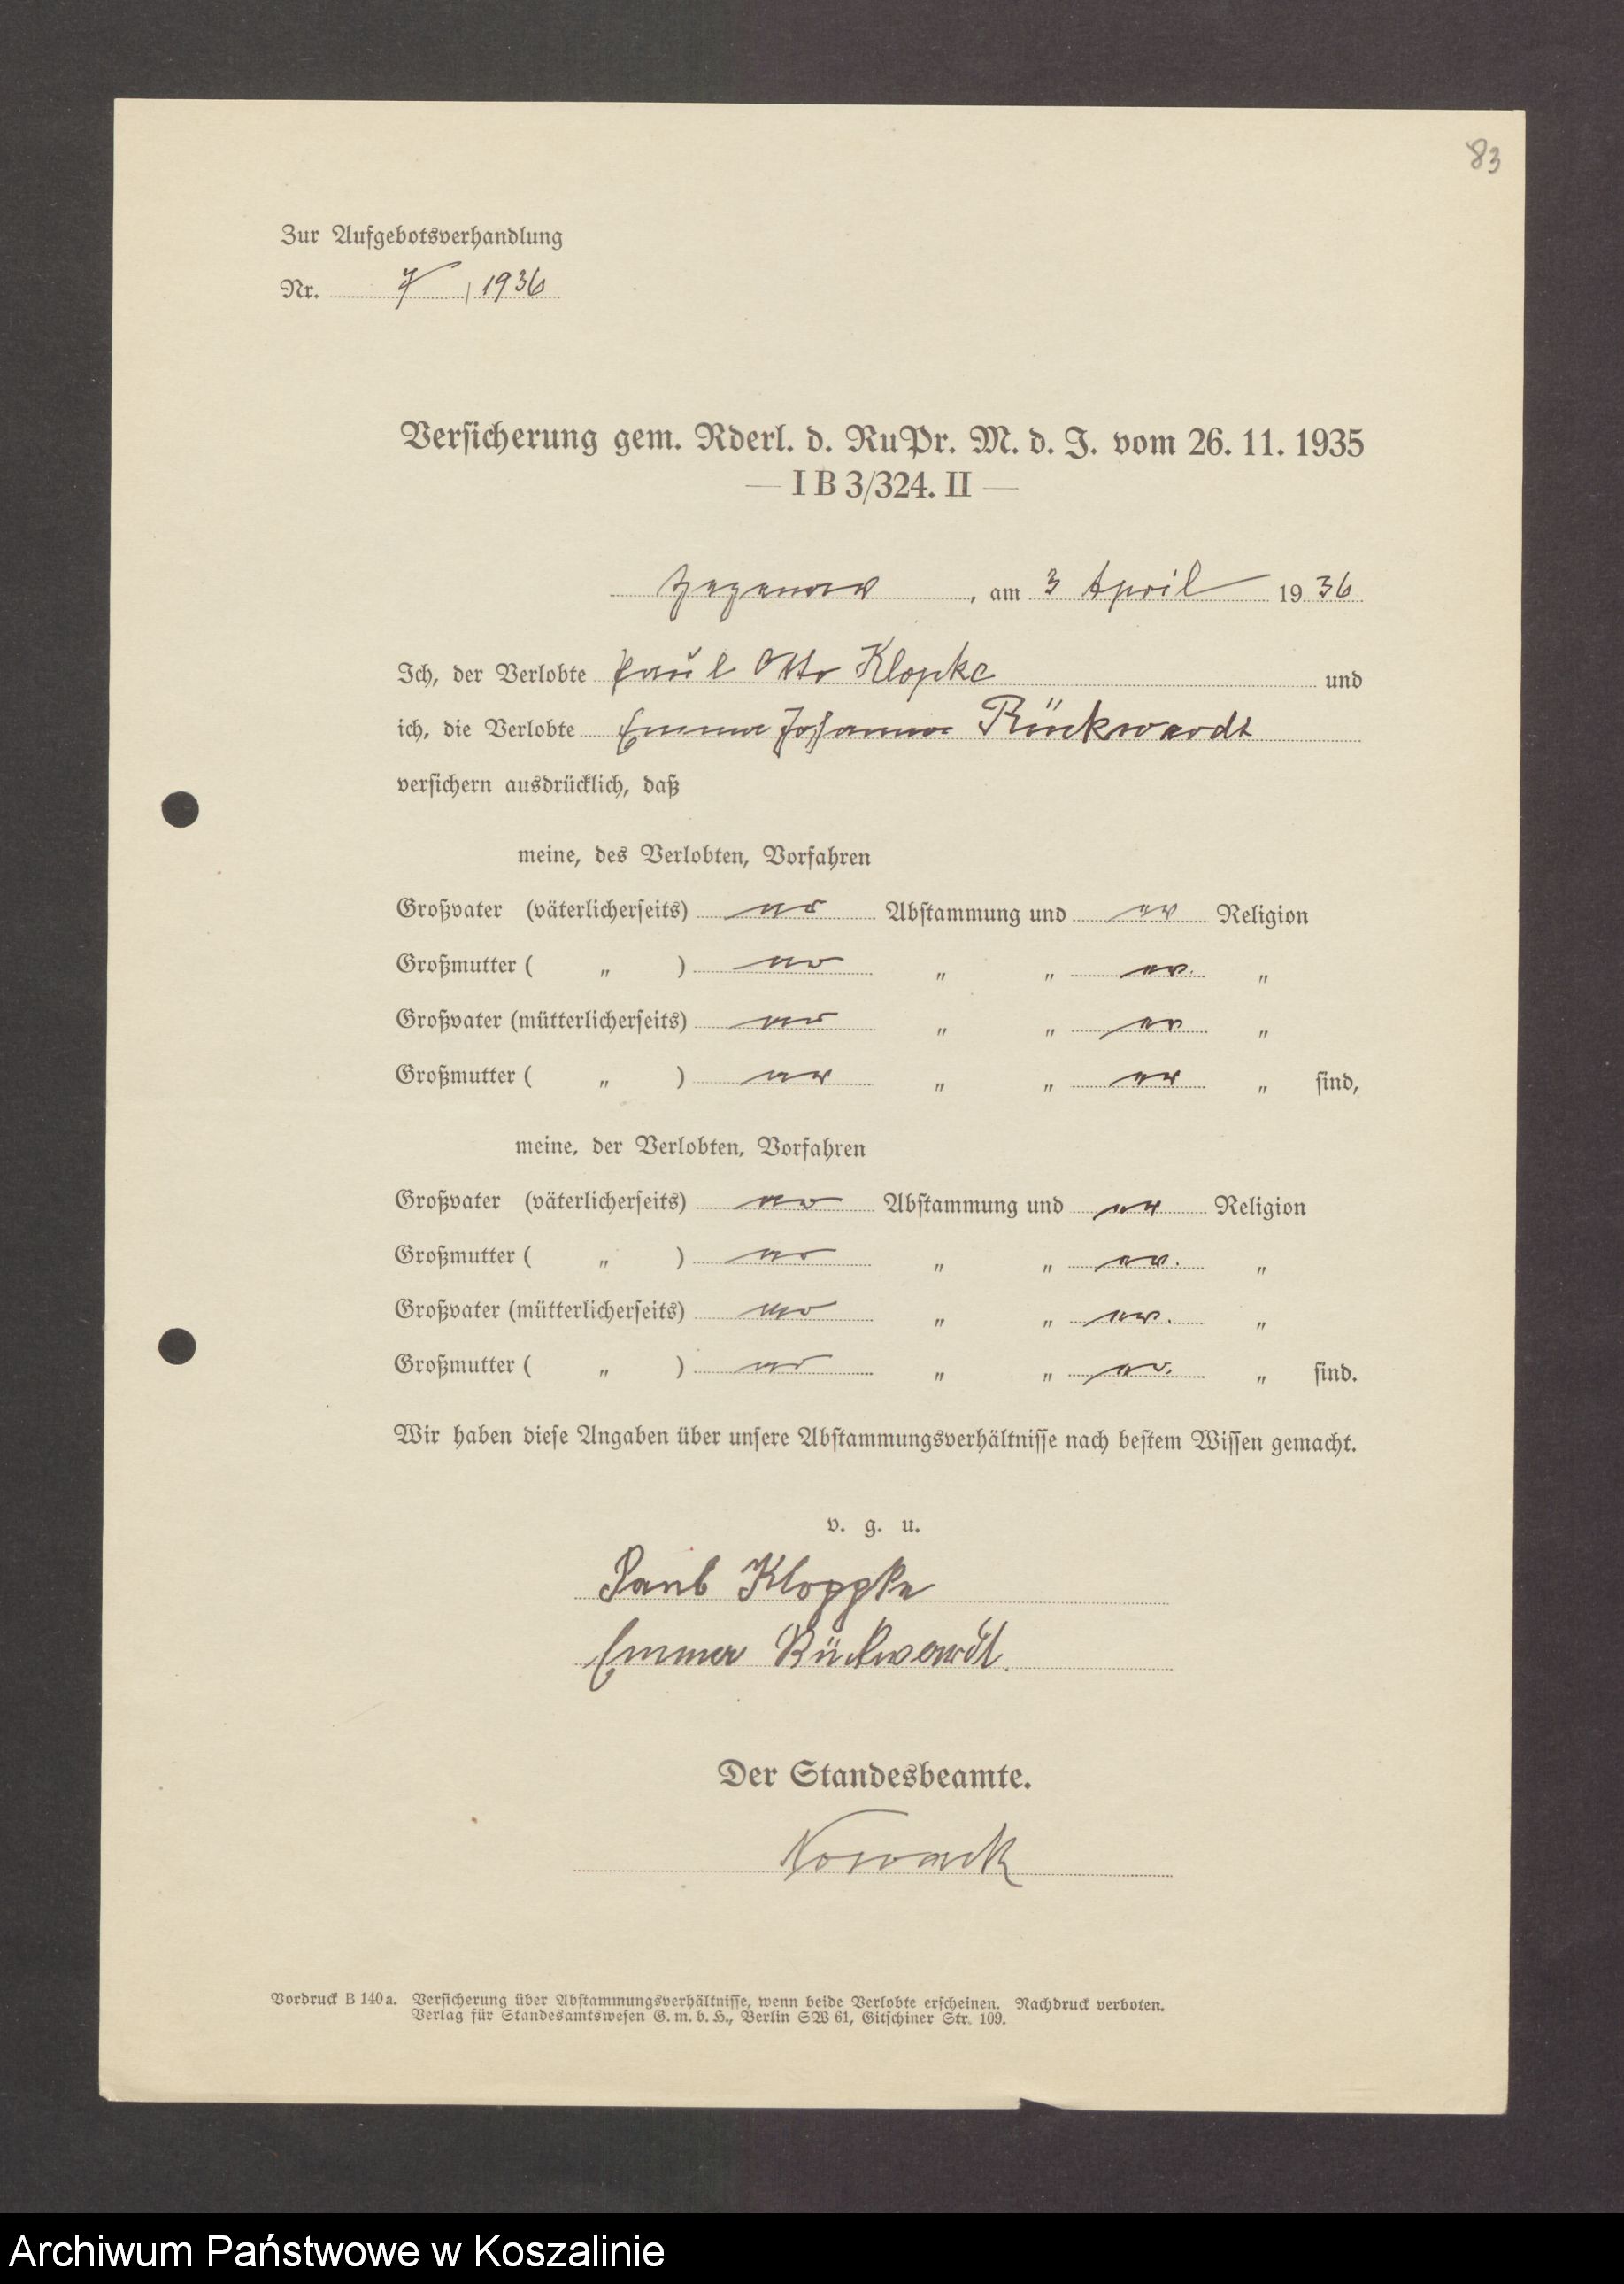 83
Zur Aufgebotsverhandlung
Nr. 7 / 1936
Versicherung gem. Rderl. d. RuPr. M. d. J. vom 26. 11. 1935
— I B 3/324. II —
Zezenow, am 3 April 1936
Ich, der Verlobte Paul Otto Klopke und
ich, die Verlobte Emma Johanna Rückwardt
versichern ausdrücklich, daß
meine, des Verlobten, Vorfahren
Großvater (väterlicherseits) ar Abstammung und ev Religion
Großmutter ( „ ) ar „ „ ev. „
Großvater (mütterlicherseits) ar „ „ ev „
Großmutter ( „ ) ar „ „ ev „ sind,
meine, der Verlobten, Vorfahren
Großvater (väterlicherseits) ar Abstammung und ev Religion
Großmutter ( „ ) ar „ „ ev. „
Großvater (mütterlicherseits) ar „ „ ev. „
Großmutter ( „ ) ar „ „ ev. „ sind.
Wir haben diese Angaben über unsere Abstammungsverhältnisse nach bestem Wissen gemacht.
v. g. u.
Paul Kloppke
Emma Rückwardt.
Der Standesbeamte.
Nowack
Vordruck B 140a. Versicherung über Abstammungsverhältnisse, wenn beide Verlobte erscheinen. Nachdruck verboten.
Verlag für Standesamtswesen G. m. b. H., Berlin SW 61, Gitschiner Str. 109.
Archiwum Państwowe w Koszalinie